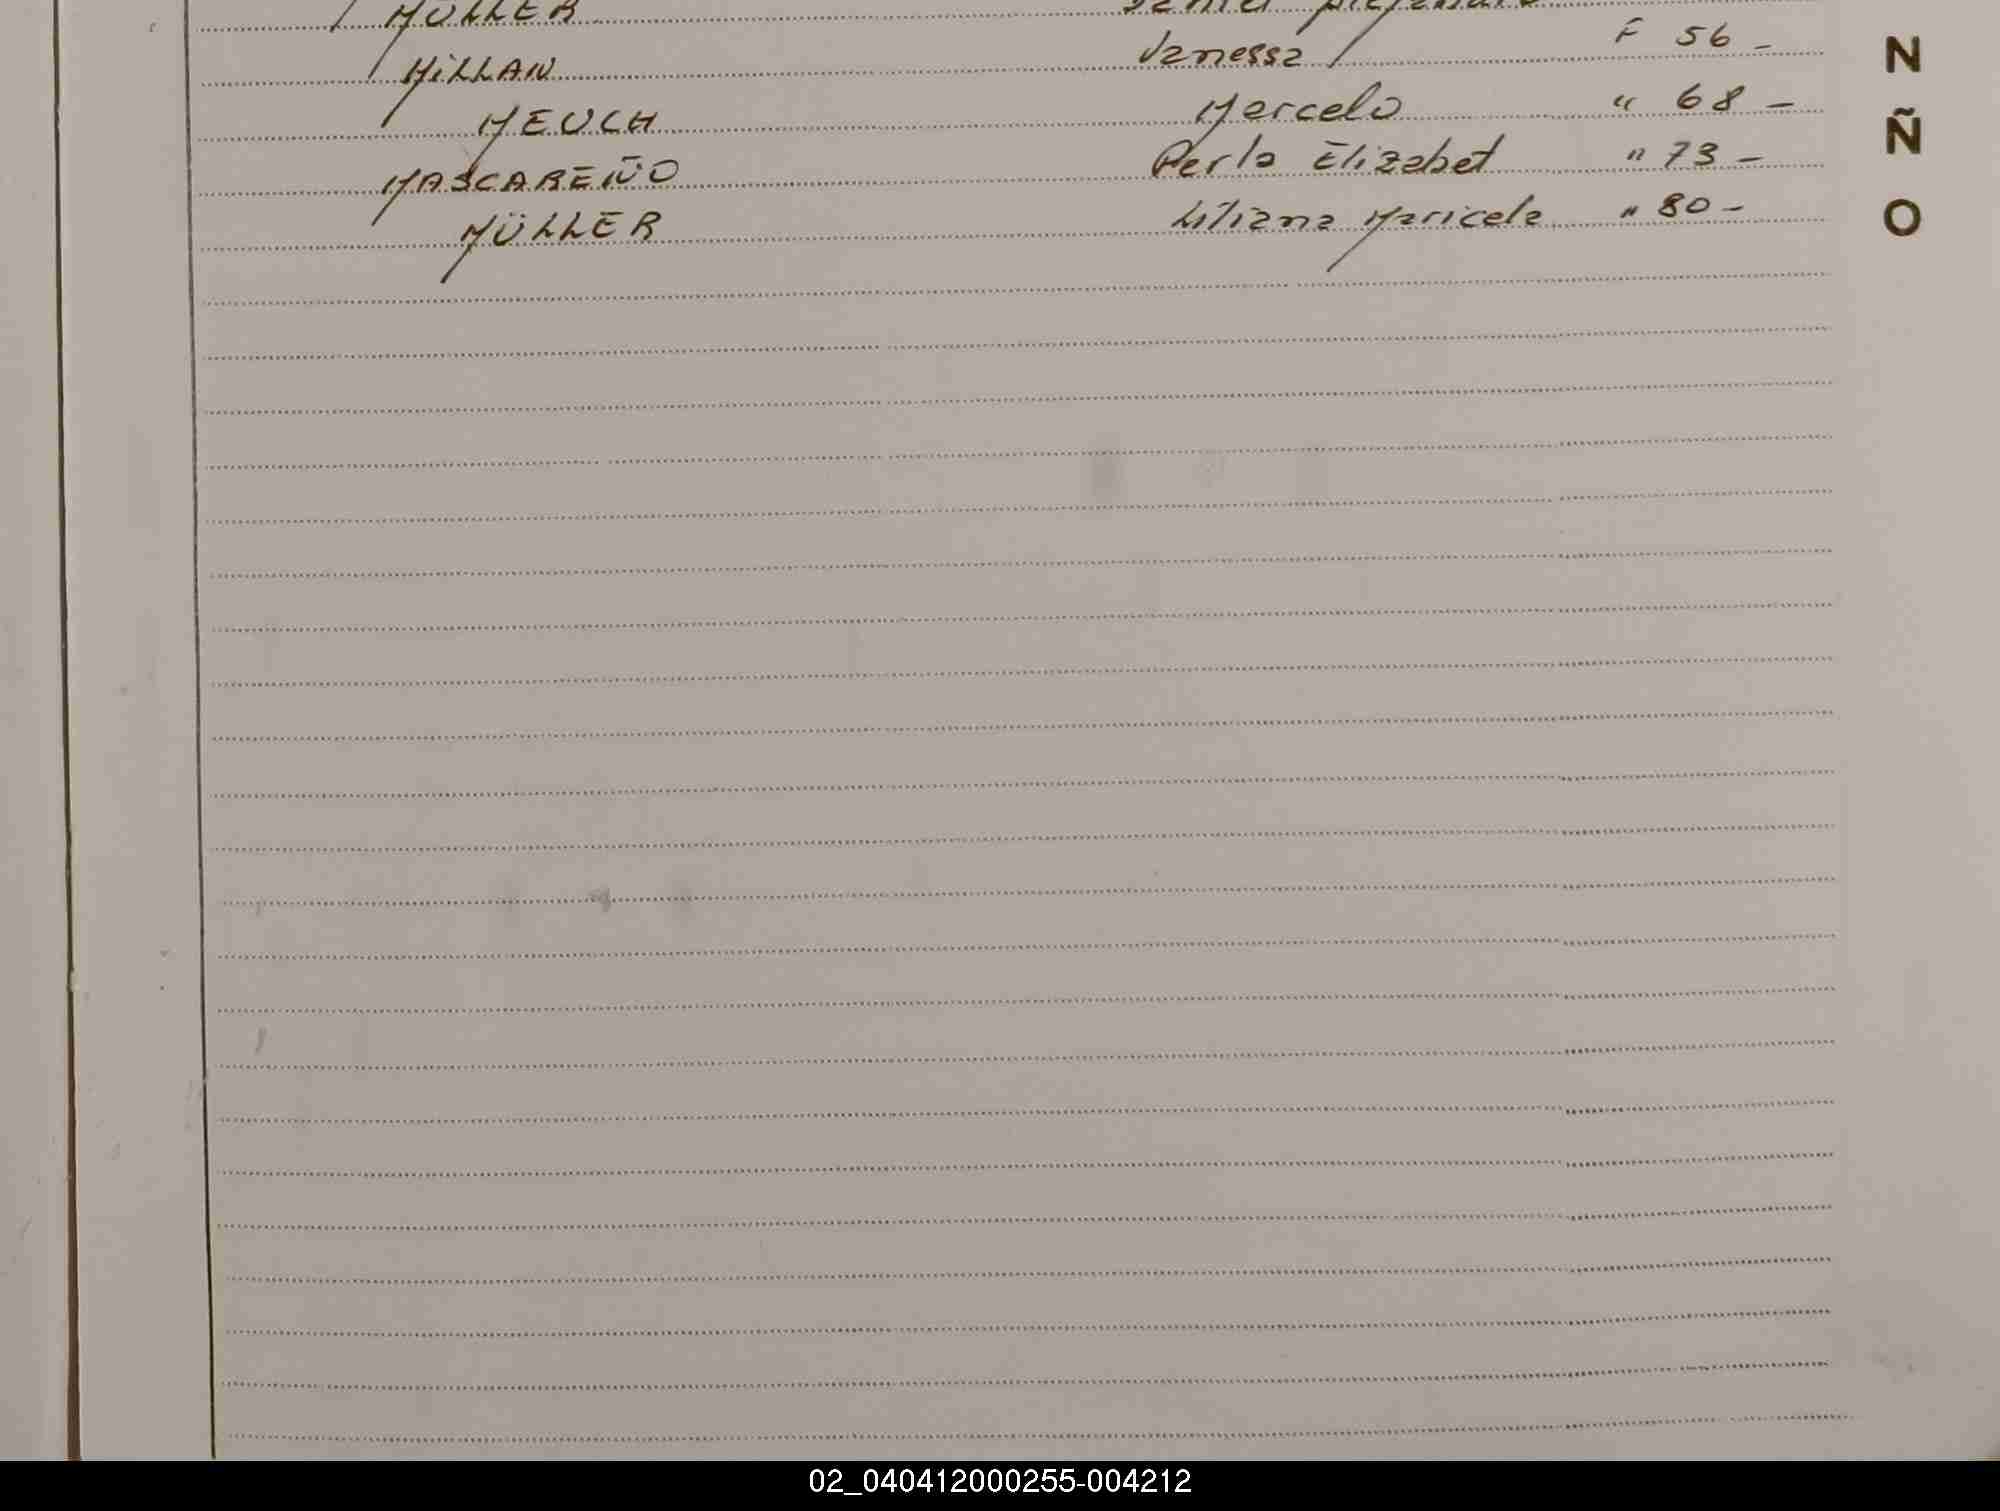 MÜLLER
MiLLAN Vanessa F 56 -
MEUCH Marcelo " 68 -
MASCAREÑO Perla Elizabet " 73 -
MÜLLER Liliana Maricela " 80 -
N
Ñ
O
02_040412000255-004212